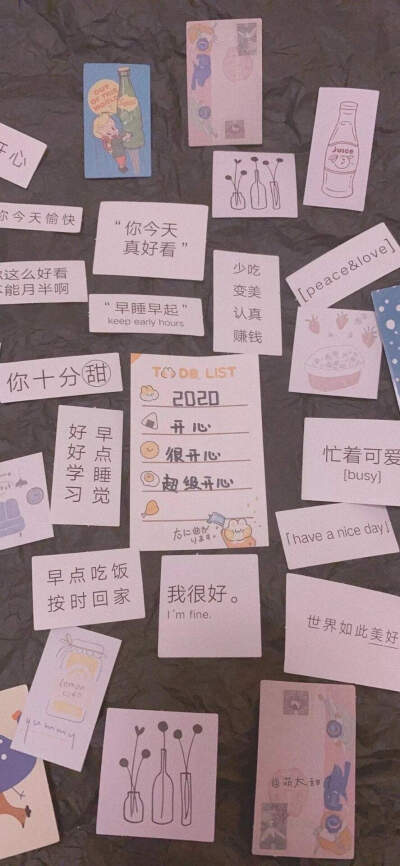 OUT
OF THE
WORLD
Juice
开心
你今天愉快
“你今天
真好看”
少吃
变美
认真
赚钱
[peace&love]
这么好看
不能月半啊
“早睡早起”
keep early hours
你十分甜
TO DO LIST
2020
开心
很开心
超级开心
右に曲が
ります。
早点睡觉
好好学习
忙着可爱
[busy]
「have a nice day」
早点吃饭
按时回家
我很好。
I'm fine.
世界如此美好
lemon
yummy